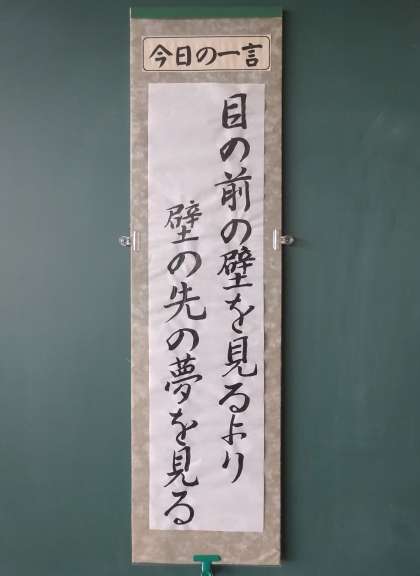 今日の一言
目の前の壁を見るより
壁の先の夢を見る